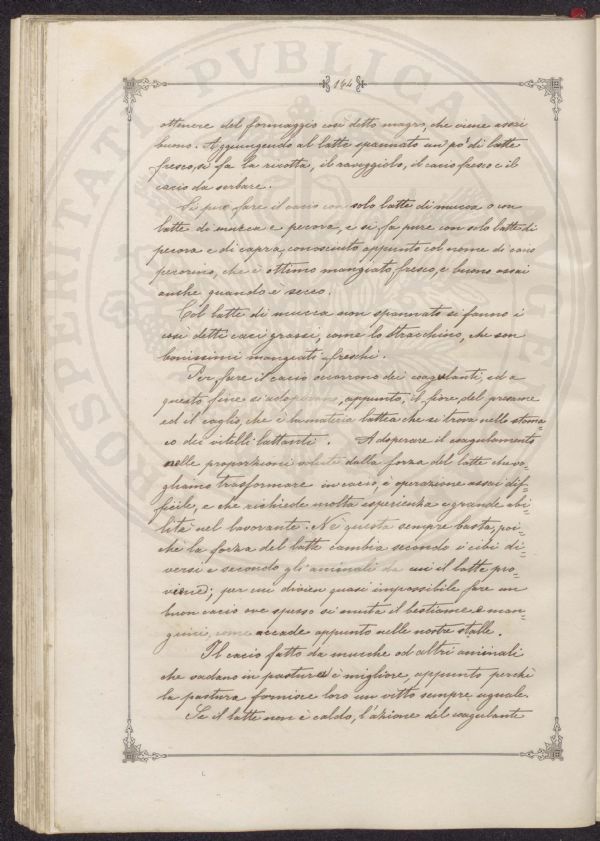 164
ottenere del formaggio così detto magro, che viene assai
buono. Aggiungendo al latte spannato un po' di latte
fresco, si fa la ricotta, il raveggiolo, il cacio fresco e il
cacio da serbare.
Si può fare il cacio con solo latte di mucca o con
latte di mucca e pecora, e si fa pure con solo latte di
pecora e di capra, conosciuto appunto col nome di cacio
pecorino, che è ottimo mangiato fresco, e buono assai
anche quando è secco.
Col latte di mucca non spannato si fanno i
così detti caci grassi, come lo stracchino, che son
bonissimi mangiati freschi.
Per fare il cacio occorrono dei coagulanti, ed a
questo fine si adoperano, appunto, il fiore, del presame
ed il caglio, che è la materia lattea che si trova nello stoma=
co dei vitelli lattanti. Adoperare il coagulamento
nelle proporzioni volute dalla forza del latte che vo=
gliamo trasformare in cacio, è operazione assai dif=
ficile, e che richiede molta esperienza e grande abi=
lità nel lavorante. Nè questa sempre basta, poi=
chè la forza del latte cambia secondo i cibi di=
versi e secondo gli animali da cui il latte pro=
viene; per cui divien quasi impossibile fare un
buon cacio ove spesso si muta il bestiame e man=
gimi, come accade appunto nelle nostre stalle.
Il cacio fatto da mucche od altri animali
che vadano in pastura è migliore appunto perchè
la pastura fornisce loro un vitto sempre uguale.
Se il latte non è caldo, l'azione del coagulante
PROSPERITATI PVBLICAE